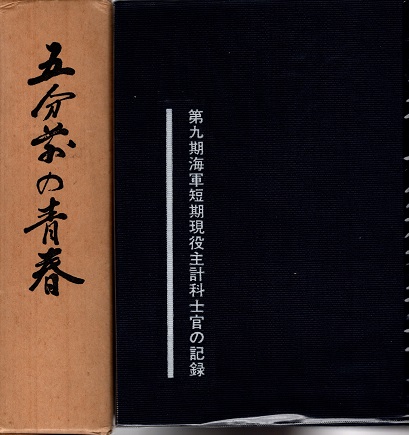 五分前の青春
第九期海軍短期現役主計科士官の記録